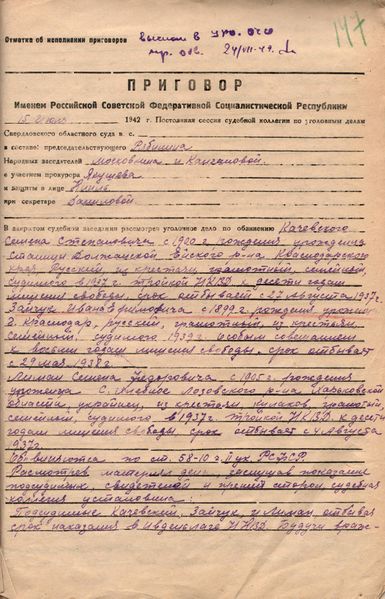 147
Отметка об исполнении приговоров
24/VII-42
ПРИГОВОР
Именем Российской Советской Федеративной Социалистической Республики
15 Июля 1942 г. Постоянная сессия судебной коллегии по уголовным делам
Свердловского областного суда в. с.
в составе: председательствующего
Народных заседателей и
с участием прокурора Якушева
и защиты в лице
при секретаре Вашловой
В закрытом судебном заседании рассмотрел уголовное дело по обвинению Качевского
Семена Степановича с 1900 г. рождения, уроженца
станицы Должанской Ейского р-на Краснодарского
края, Русский, из крестьян, грамотный, семейный,
судимого в 1937 г. тройкой НКВД к десяти годам
лишения свободы, срок отбывает с 22 августа 1937 г.
Зайчук Ивана с 1899 г. рождения,
г. Краснодар, русский, грамотный, из крестьян
семейный, судимого 1939 г. особым совещанием
к восьми годам лишения свободы, срок отбывает
с 29 мая 1938 г.
Лиман Семена Федоровича с 1905 г. рождения
уроженца с. Лозовского р-на Харьковской
области, украинец, из крестьян кулаков, грамотный,
семейный, судимого в 1937 г. тройкой НКВД к десяти
годам лишения свободы, срок отбывает с 4 Августа
1937 г.
Обвиняются по ст. 58-10 ч. II УК РСФСР.
Рассмотрев материал дела, заслушав показания
подсудимых, свидетелей и прения сторон, судебная
коллегия установила:
Подсудимые Качевский, Зайчук и Лиман, отбывая
срок наказания в Ивдельлаге НКВД. Будучи враж-